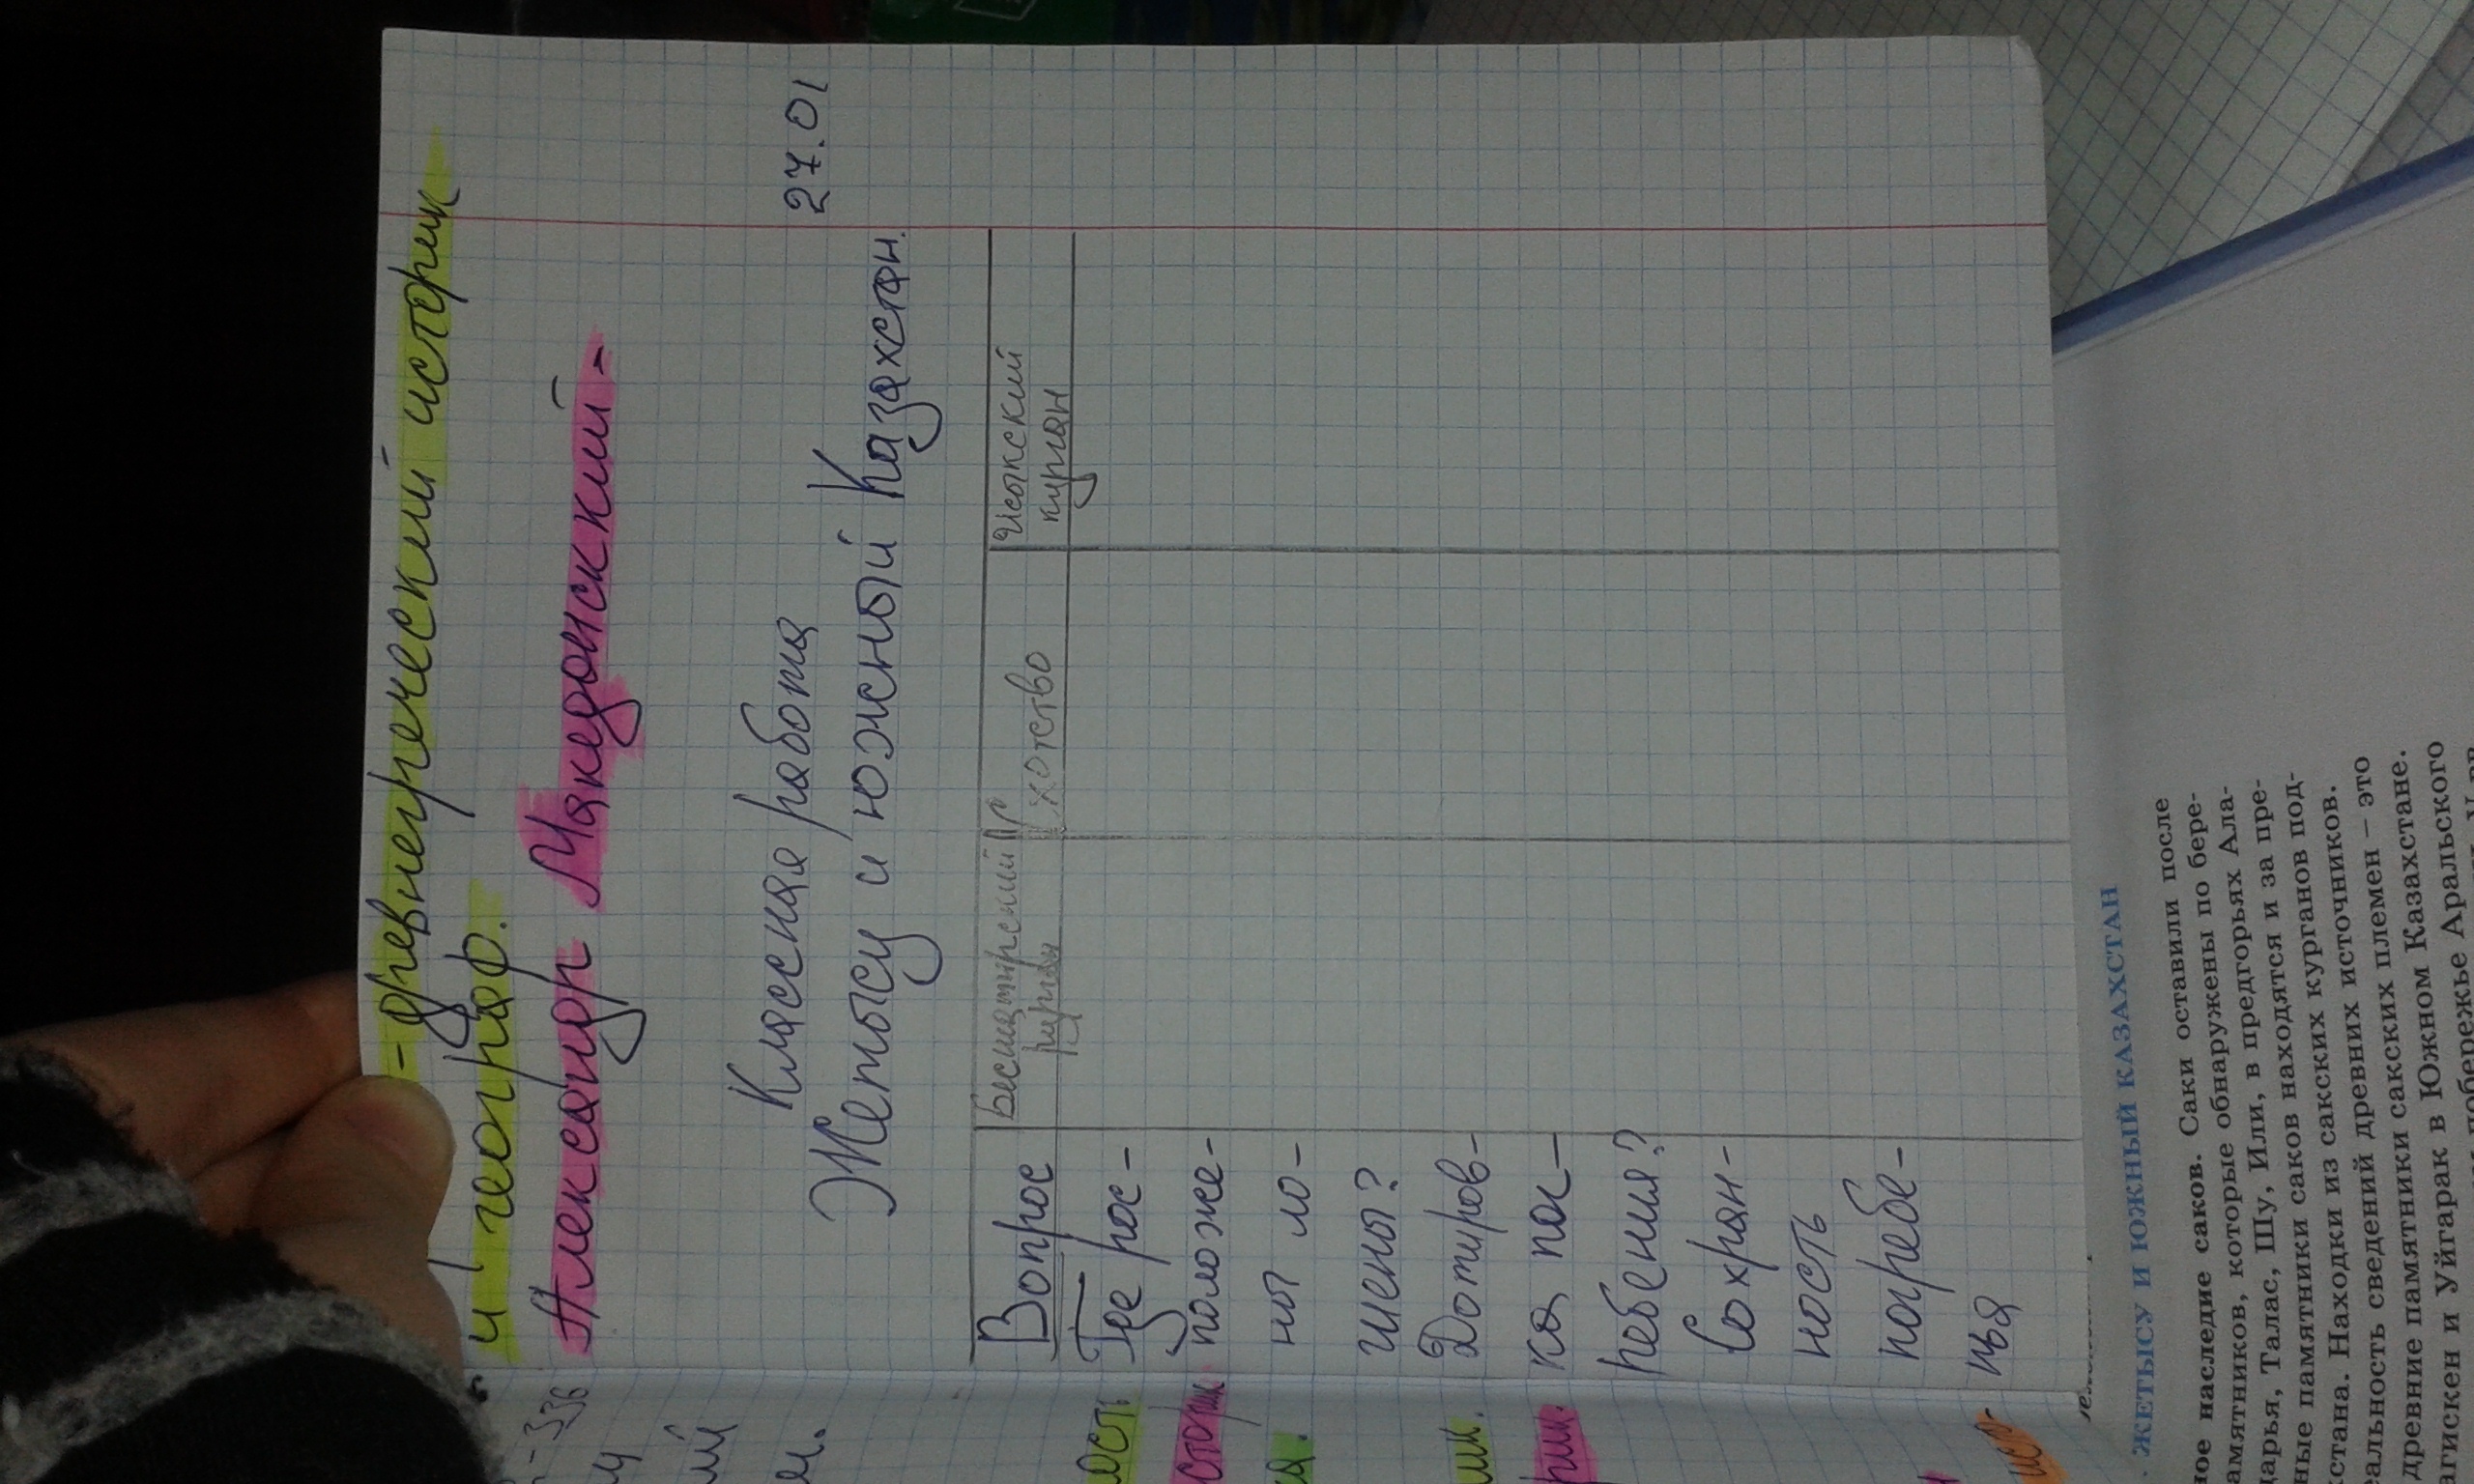 - древнегреческий историк
и географ.
Александр Македонский -
27.01
Классная работа
Жетысу и южный Казахстан.
Вопрос
Бесшатырский
схотство
Иссыкский
курган
Где рос-
положе-
ны ло-
шены?
Датиров-
ка пог-
ребения?
Сохран-
ность
погребе-
нья
- 336
ий
ость
сторик
рик.
ЖЕТЫСУ И ЮЖНЫЙ КАЗАХСТАН
ное наследие саков. Саки оставили после
амятников, которые обнаружены по бере-
дарья, Талас, Шу, Или, в предгорьях Ала-
ные памятники саков находятся и за пре-
стана. Находки из сакских курганов под-
альность сведений древних источников.
древние памятники сакских племен – это
агискен и Уйгарак в Южном Казахстане.
побережье Аральского